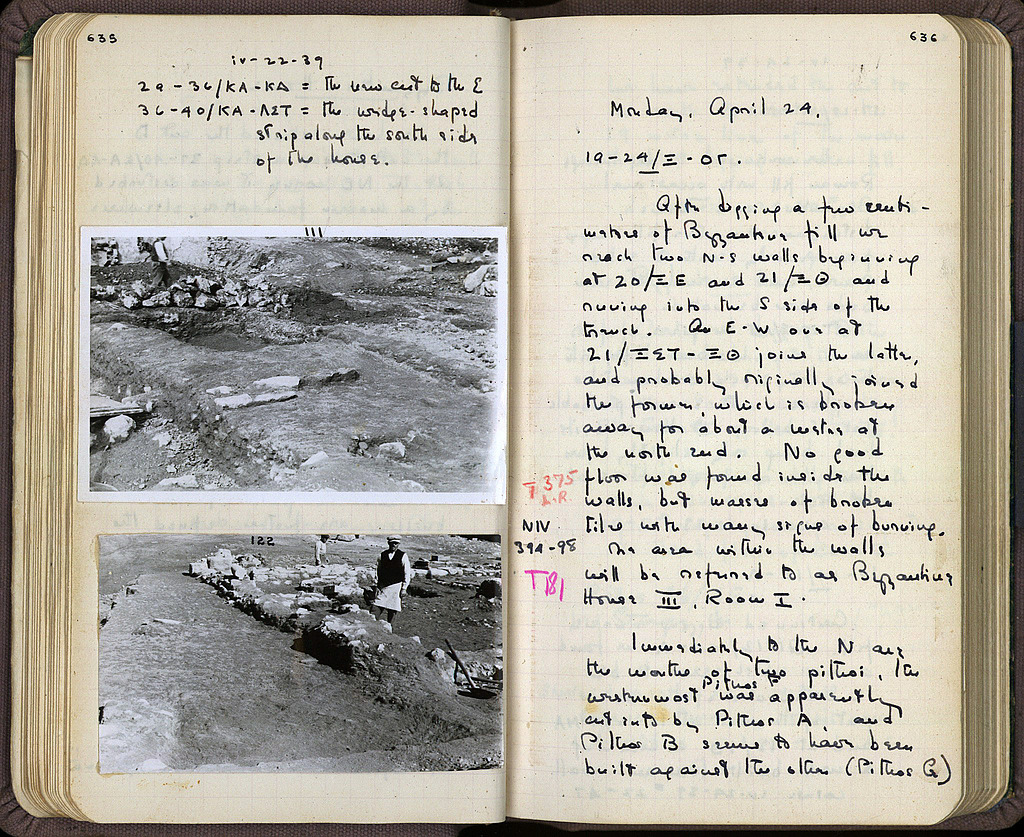 635
iv-22-39
29-36/ΚΑ-ΚΔ = the new cut to the E
36-40/ΚΑ-ΛΣΤ = the wedge-shaped
strip along the south side
of the house.
111
122
636
Monday, April 24.
19-24/Ξ-ΟΓ.
After digging a few centi-
metres of Byzantine fill we
reach two N-S walls beginning
at 20/ΞΕ and 21/ΞΘ and
running into the S side of the
trench. An E-W one at
21/ΞΣΤ-ΞΘ joins the latter,
and probably originally joined
the former, which is broken
away for about a metre at
the north end. No good
floor was found inside the
walls, but masses of broken
tile with many signes of burning.
The area within the walls
will be referred to as Byzantine
House III, Room I.
T 375
L.R.
NIV
394-98
T181
Immediately to the N are
the mouths of two pithoi, the
westernmost was apparently
cut into by Pithos A and
Pithos B seems to have been
built against the other (Pithos G)